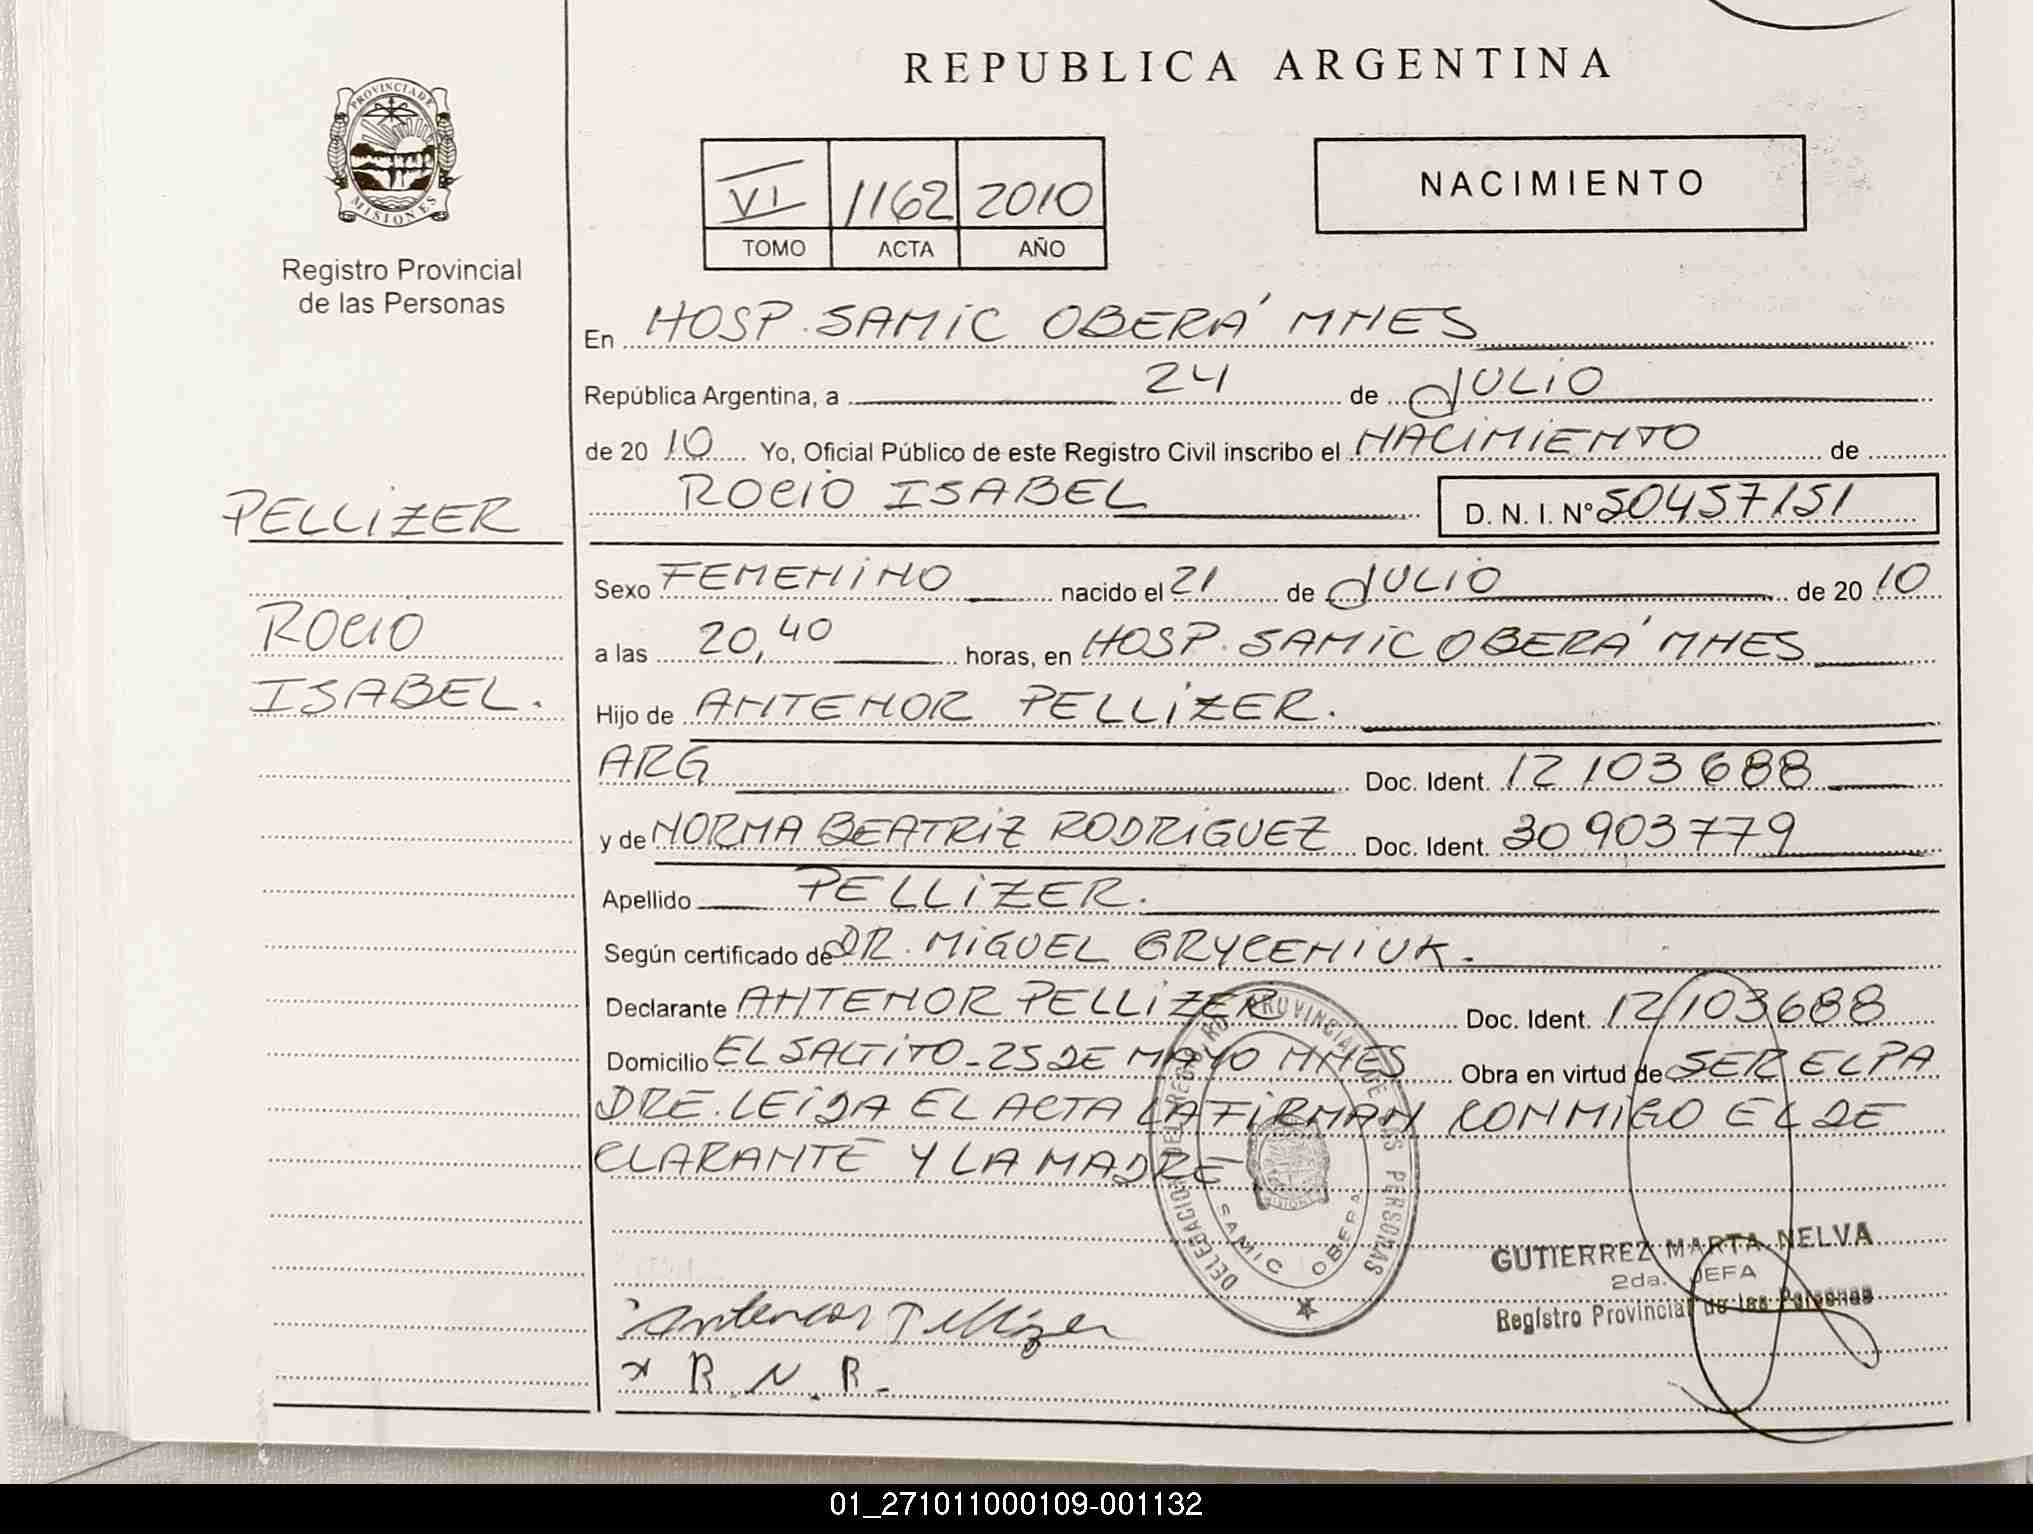 REPUBLICA ARGENTINA
PROVINCIA DE
MISIONES
Registro Provincial
de las Personas
VI 1162 2010
TOMO ACTA AÑO
NACIMIENTO
En HOSP. SAMIC OBERÁ MNES
República Argentina, a 24 de JULIO
de 20 10 Yo, Oficial Público de este Registro Civil inscribo el NACIMIENTO de
ROCIO ISABEL D. N. I. N° 50457151
PELLIZER
ROCIO
ISABEL.
Sexo FEMENINO nacido el 21 de JULIO de 20 10
a las 20,40 horas, en HOSP. SAMIC OBERÁ MNES
Hijo de ANTENOR PELLIZER.
ARG Doc. Ident. 12103688
y de NORMA BEATRIZ RODRIGUEZ Doc. Ident. 30903779
Apellido PELLIZER.
Según certificado de DR. MIGUEL GRYCENIUK.
Declarante ANTENOR PELLIZER Doc. Ident. 12103688
Domicilio EL SALTITO - 25 DE MAYO MNES Obra en virtud de SER EL PA
DRE. LEIDA EL ACTA LA FIRMAN CONMIGO EL DE
CLARANTE Y LA MADRE
DELEGACION DEL REGISTRO PROVINCIAL DE LAS PERSONAS
SAMIC OBERA
GUTIERREZ MARTA NELVA
2da. JEFA
Registro Provincial de las Personas
Antenor Pellizer
x R. N. R.
01_271011000109-001132